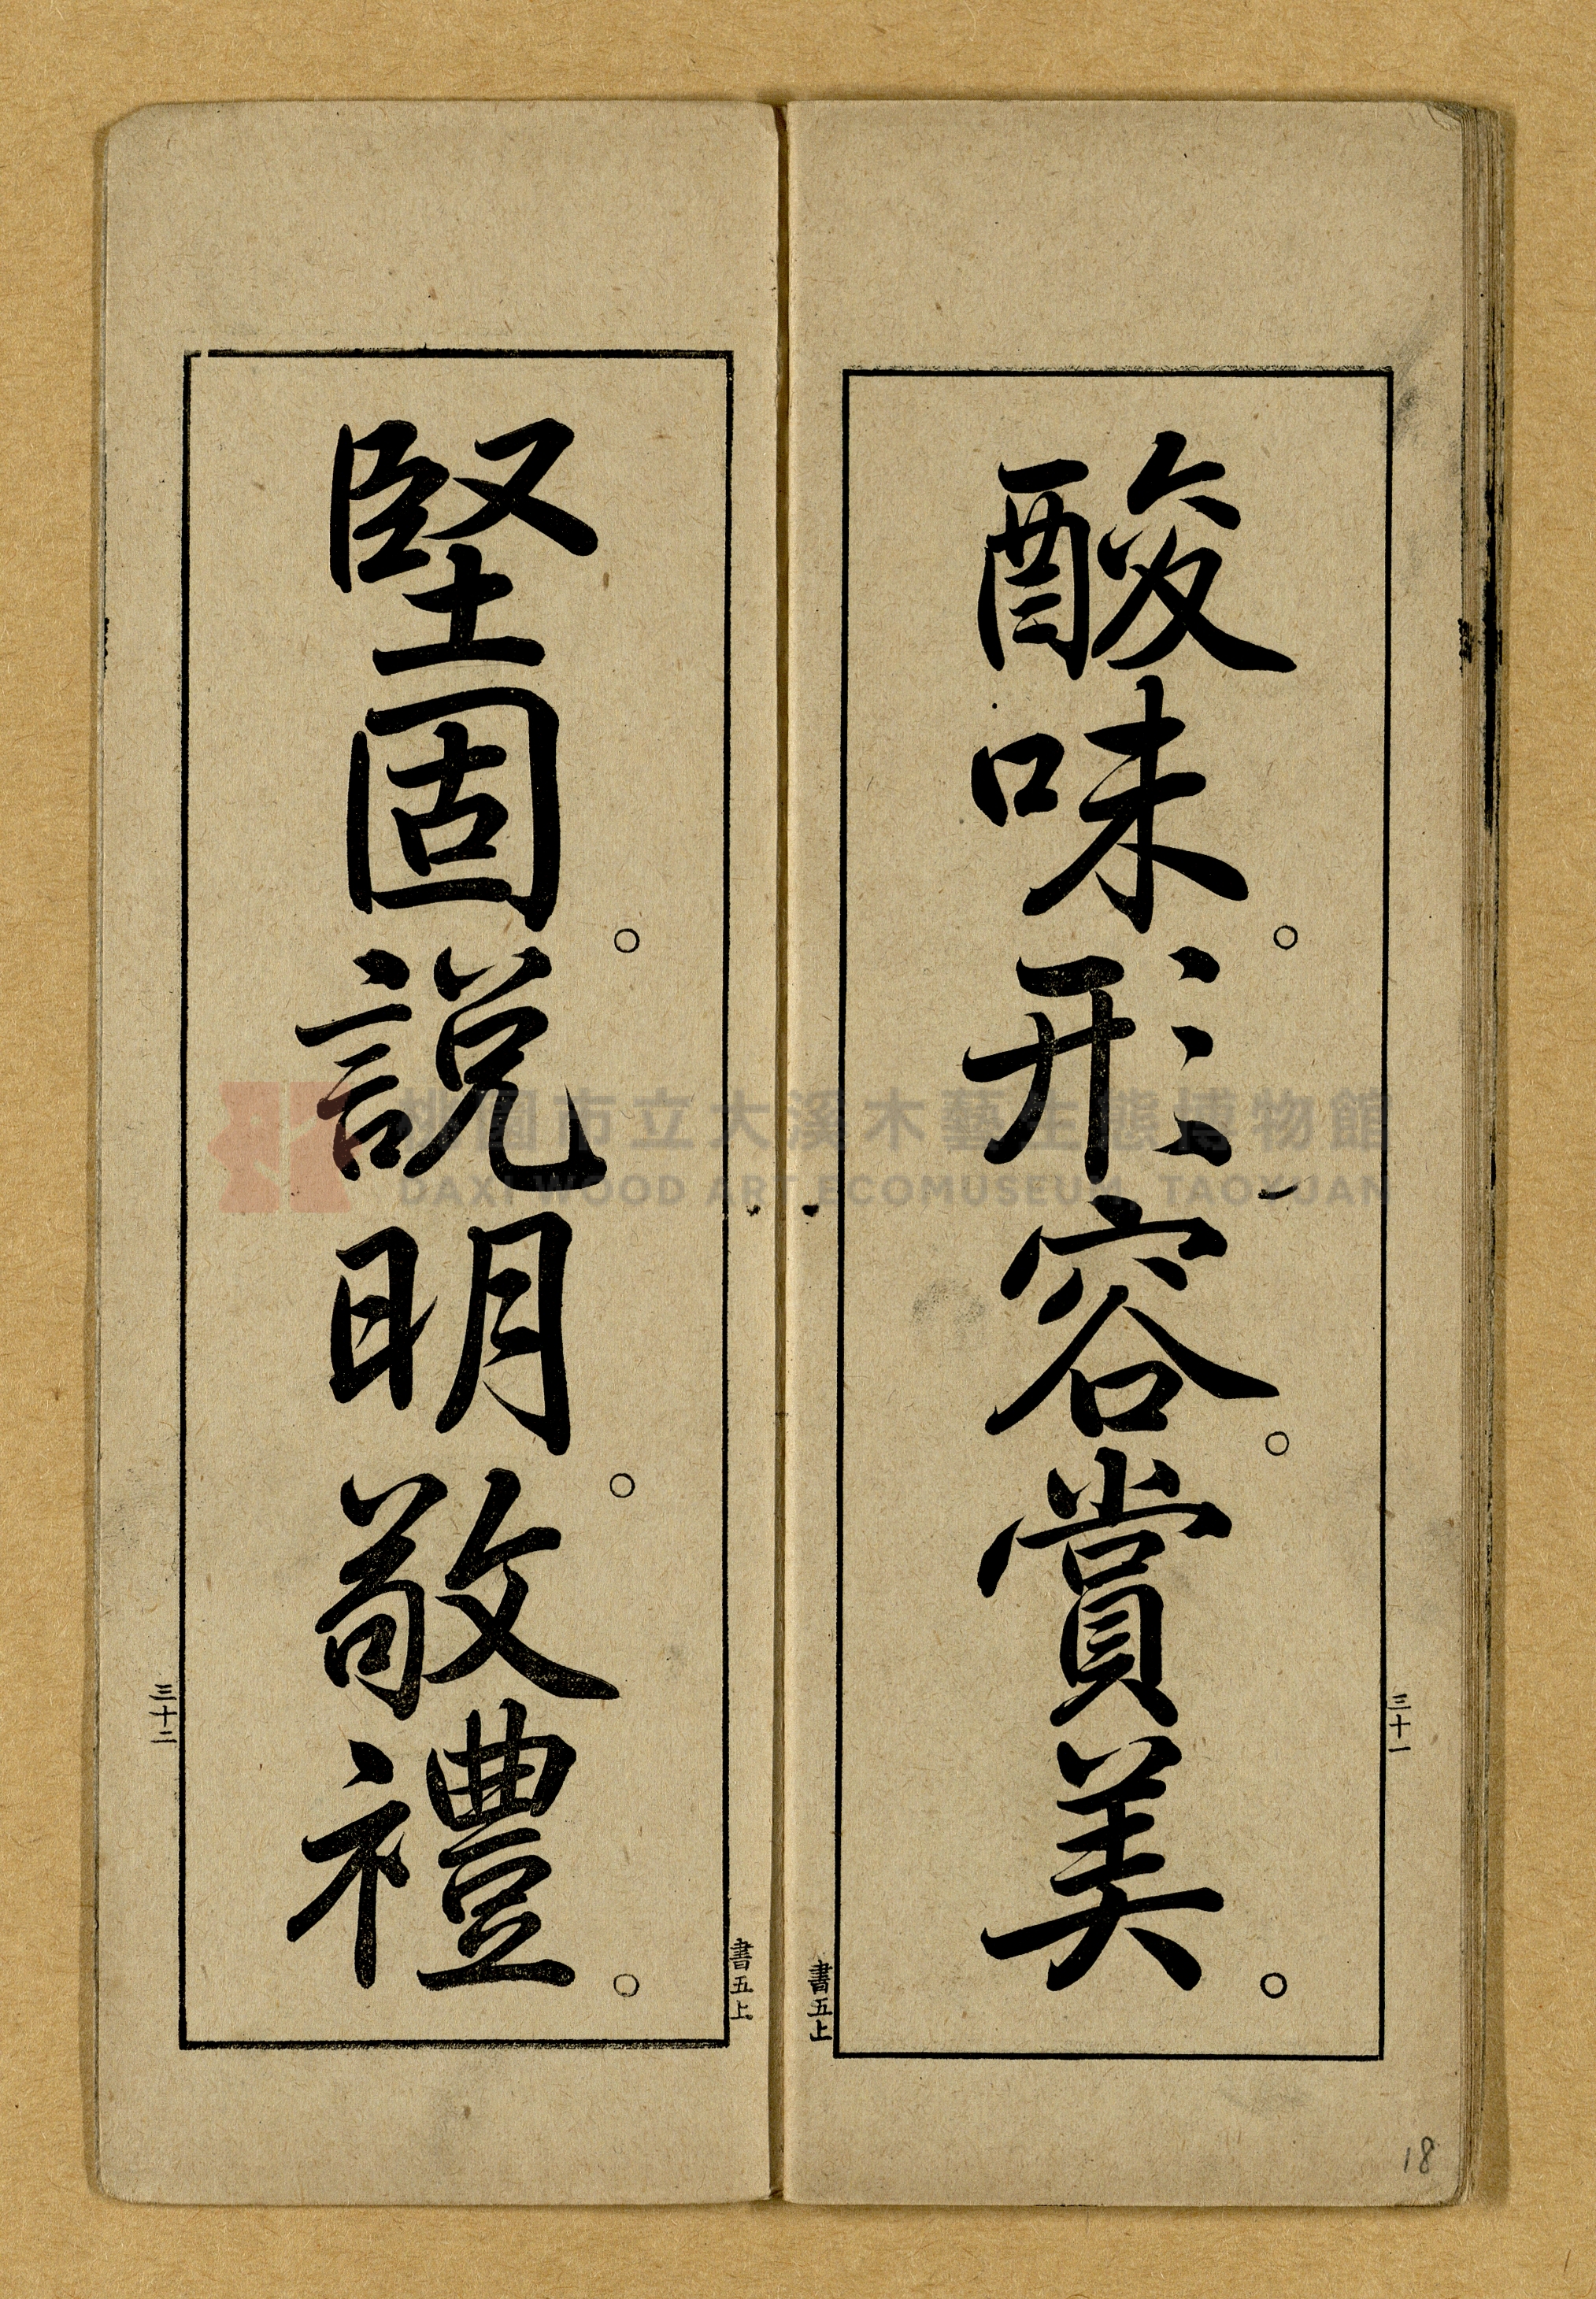 酸味。形容。賞美。
三十一
書五上
堅固。說明。敬禮。
三十二
書五上
18
桃園市立大溪木藝生態博物館
DAXI WOOD ART ECOMUSEUM, TAOYUAN